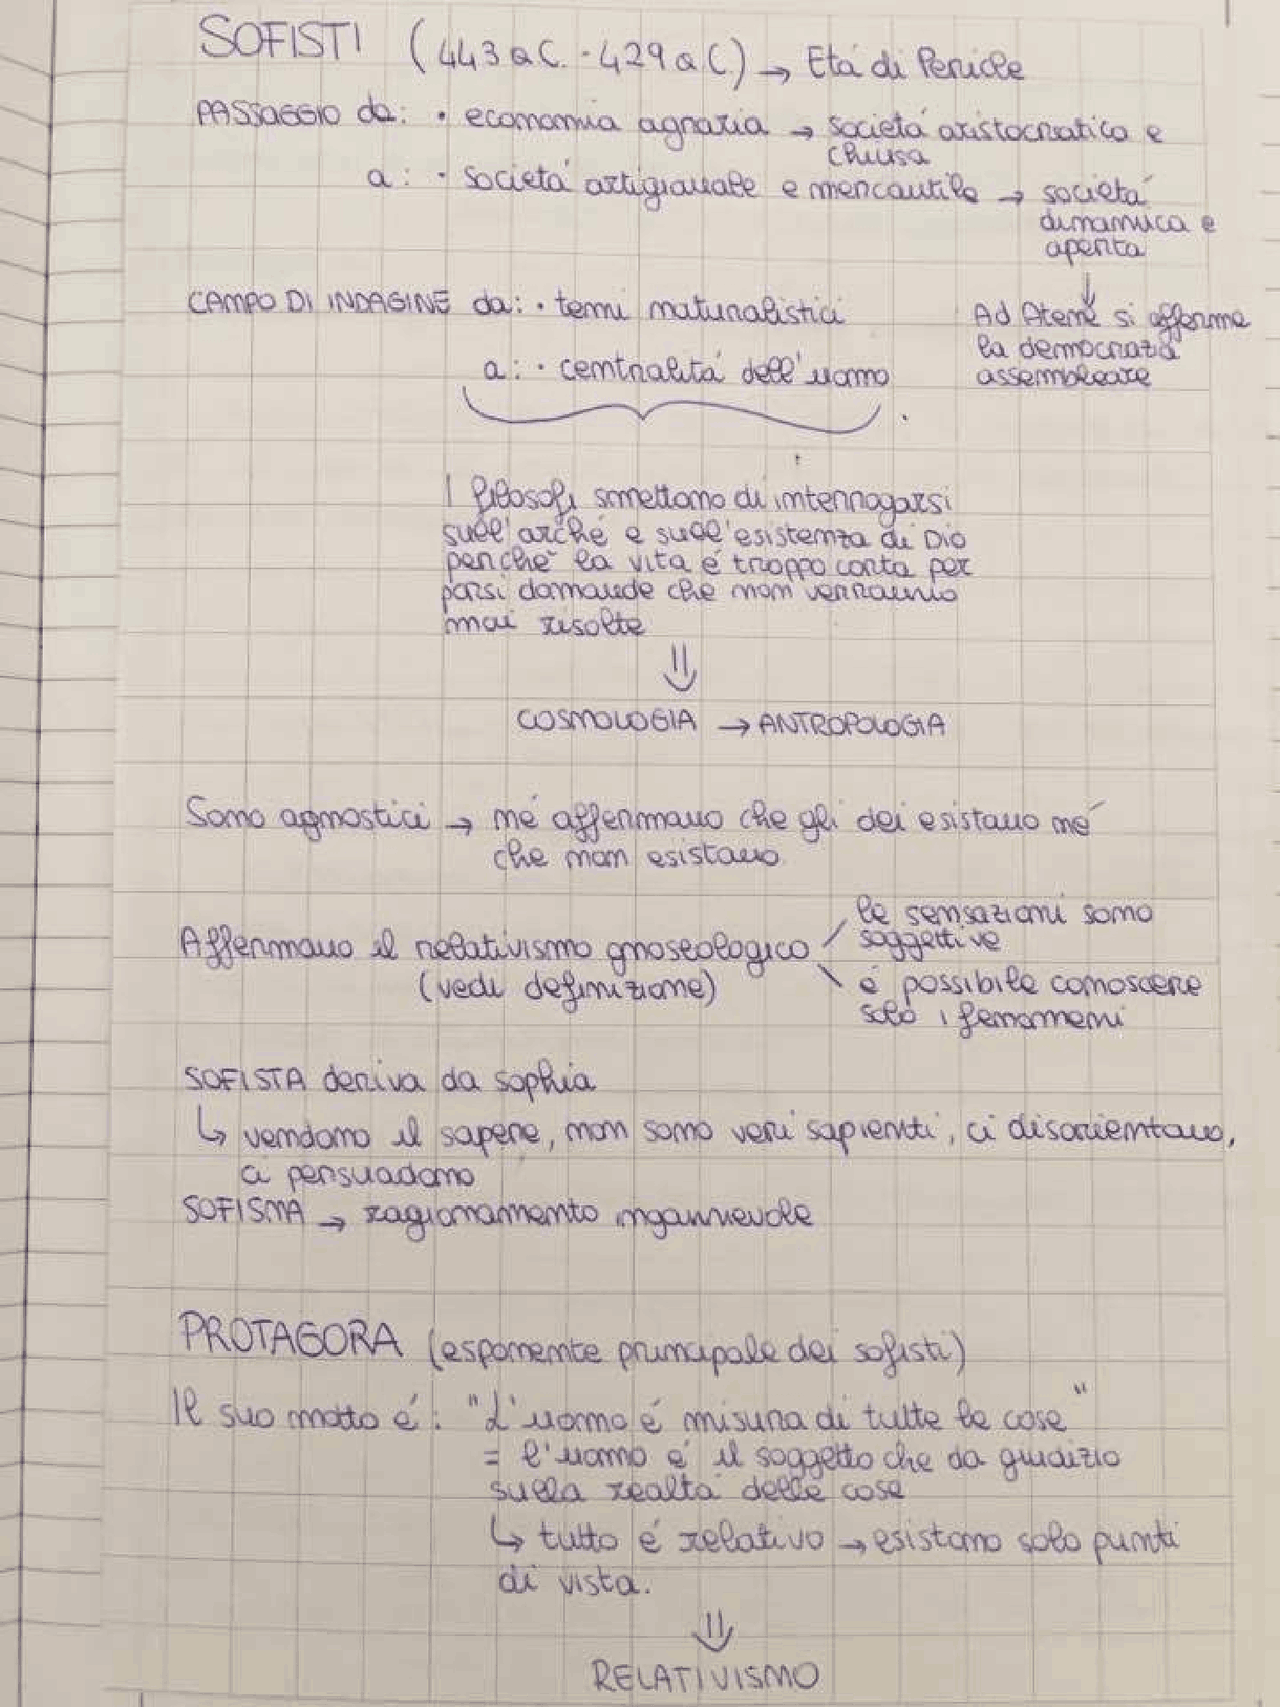 SOFISTI (443 a C. - 429 a C) → Etá di Pericle
PASSAGGIO da: • economia agraria → societá aristocratica e
chiusa
a: • societá artigianale e mercantile → societá
dinamica e
aperta
↓
CAMPO DI INDAGINE da: • temi naturalistici
Ad Atene si afferma
la democrazia
assembleare
a: • centralitá dell'uomo
I filosofi smettono di interrogarsi
sull'arché e sull'esistenza di Dio
perché la vita é troppo corta per
porsi domande che non verranno
mai risolte
⇓
COSMOLOGIA → ANTROPOLOGIA
Sono agnostici → né affermano che gli dei esistano né
che non esistano
le sensazioni sono
soggettive
Affermano il relativismo gnoseologico
(vedi definizione)
é possibile conoscere
solo i fenomeni
SOFISTA deriva da sophia
↳ vendono il sapere, non sono veri sapienti, ci disorientano,
ci persuadono
SOFISMA → ragionamento ingannevole
PROTAGORA (esponente principale dei sofisti)
Il suo motto é: "L'uomo é misura di tutte le cose"
= l'uomo é il soggetto che da giudizio
sulla realtá delle cose
↳ tutto é relativo → esistono solo punti
di vista.
⇓
RELATIVISMO